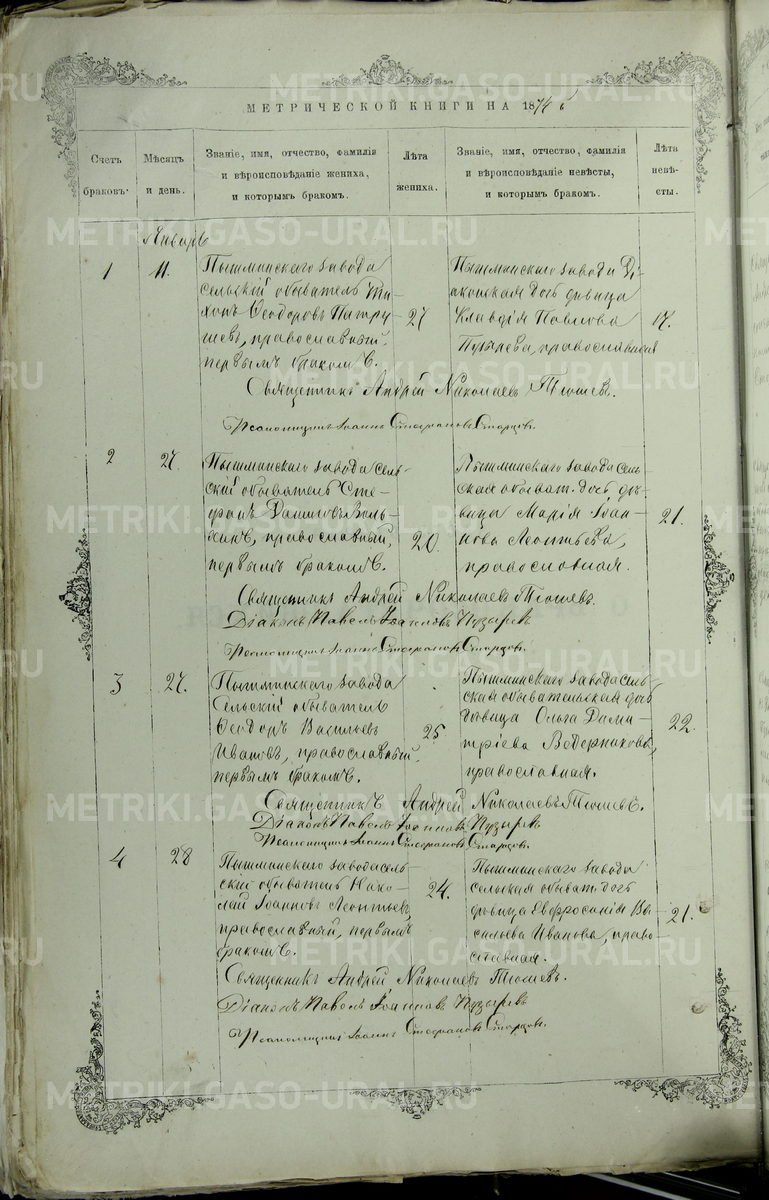 МЕТРИЧЕСКОЙ КНИГИ НА 1874 г.
Счетъ браковъ.
Мѣсяцъ и день.
Званіе, имя, отчество, фамилія и вѣроисповѣданіе жениха, и которымъ бракомъ.
Лѣта жениха.
Званіе, имя, отчество, фамилія и вѣроисповѣданіе невѣсты, и которымъ бракомъ.
Лѣта невѣ-сты.
Январь
1
11.
Пышминскаго завода
сельскій обыватель Ти-
хонъ Ѳеодоровъ Патру-
шевъ, православный,
первымъ бракомъ.
27
Пышминскаго завода Ді-
аконская дочь дѣвица
Клавдія Павлова
Пузырева, православная
17.
Священникъ Андрей Николаевъ Тюшевъ.
Псаломщикъ Іоаннъ Стефановъ Старцовъ.
2
27.
Пышминскаго завода сель-
скій обыватель Сте-
фанъ
православный,
первымъ бракомъ.
20.
Пышминскаго завода сель-
ская обыват. дочь дѣ-
вица Марія Іоан-
нова Леонтьева,
православная.
21.
Священникъ Андрей Николаевъ Тюшевъ.
Діаконъ Павелъ Іоанновъ Пузыревъ
Псаломщикъ Іоаннъ Стефановъ Старцовъ.
3
27.
Пышминскаго завода
Сельскій обыватель
Ѳеодоръ Васильевъ
Ивановъ, православный,
первымъ бракомъ.
25.
Пышминскаго завода сель-
ская обывательская дочь
дѣвица Ольга Дими-
тріева Ведерникова,
православная.
22.
Священникъ Андрей Николаевъ Тюшевъ.
Діаконъ Павелъ Іоанновъ Пузыревъ
Псаломщикъ Іоаннъ Стефановъ Старцовъ.
4
28
Пышминскаго завода сель-
скій обыватель Нико-
лай Іоанновъ Леонтьевъ,
православный, первымъ
бракомъ.
24.
Пышминскаго завода
сельская обыват. дочь
дѣвица Евфросинія Ва-
сильева Иванова, право-
славная.
21.
Священникъ Андрей Николаевъ Тюшевъ.
Діаконъ Павелъ Іоанновъ Пузыревъ
Псаломщикъ Іоаннъ Стефановъ Старцовъ.
METRIKI.GASO-URAL.RU